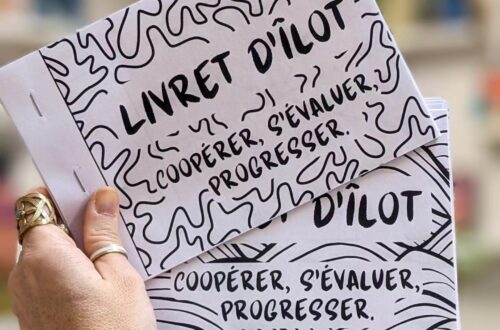 LIVRET D'ÎLOT
COOPÉRER, S'ÉVALUER,
PROGRESSER.
D'ÎLOT
COOPÉRER, S'ÉVALUER,
PROGRESSER.